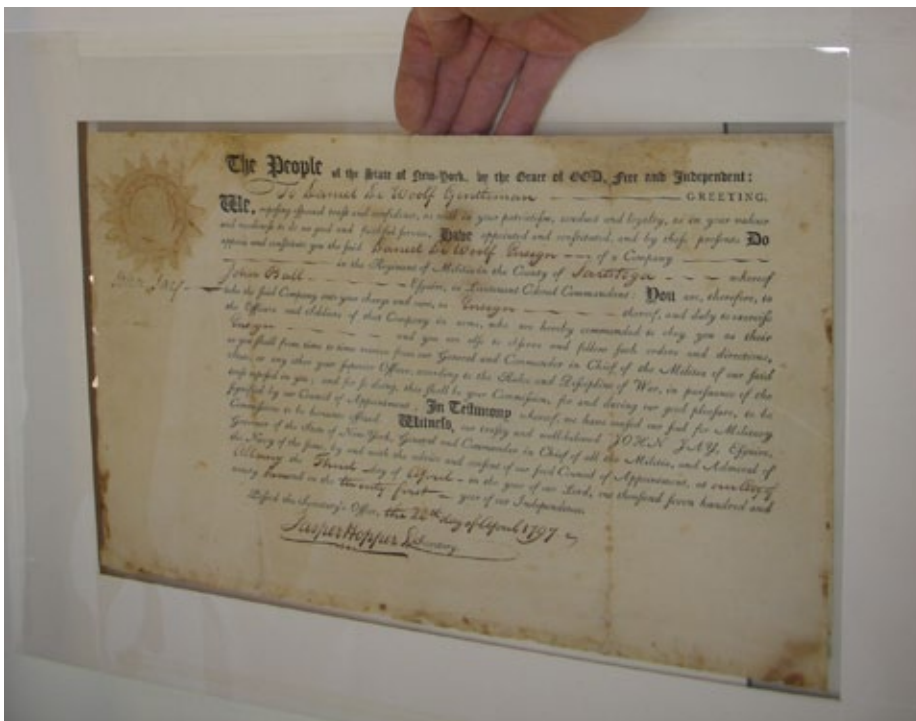 The People of the State of New-York, by the Grace of GOD, Free and Independent:
To Daniel De Woolf Gentleman GREETING.
We, reposing especial trust and confidence, as well in your patriotism, conduct and loyalty, as in your valour
and readiness to do us good and faithful service, Have appointed and constituted, and by these presents, Do
appoint and constitute you the said Daniel De Woolf Ensign of a Company
in the Regiment of Militia in the County of Saratoga whereof
John Ball Esquire, is Lieutenant Colonel Commandant: You are, therefore, to
take the said Company into your charge and care, as Ensign thereof, and duly to exercise
the Officers and Soldiers of that Company in arms, who are hereby commanded to obey you as their
Ensign and you are also to observe and follow such orders and directions,
as you shall from time to time receive from our General and Commander in Chief of the Militia of our said
State, or any other your superior Officer, according to the Rules and Discipline of War, in pursuance of the
trust reposed in you; and for so doing, this shall be your Commission, for and during our good pleasure, to be
signified by our Council of Appointment. In Testimony whereof, we have caused our seal for Military
Commissions to be hereunto affixed. Witness, our trusty and well-beloved JOHN JAY, Esquire,
Governor of the State of New-York, General and Commander in Chief of all the Militia, and Admiral of
the Navy of the same, by and with the advice and consent of our said Council of Appointment, at our City of
Albany the Third day of April in the year of our Lord, one thousand seven hundred and
ninety seven and in the twenty first year of our Independence.
Passed the Secretary's Office, the 22th day of April 1797
Jasper Hopper Secretary
John Jay